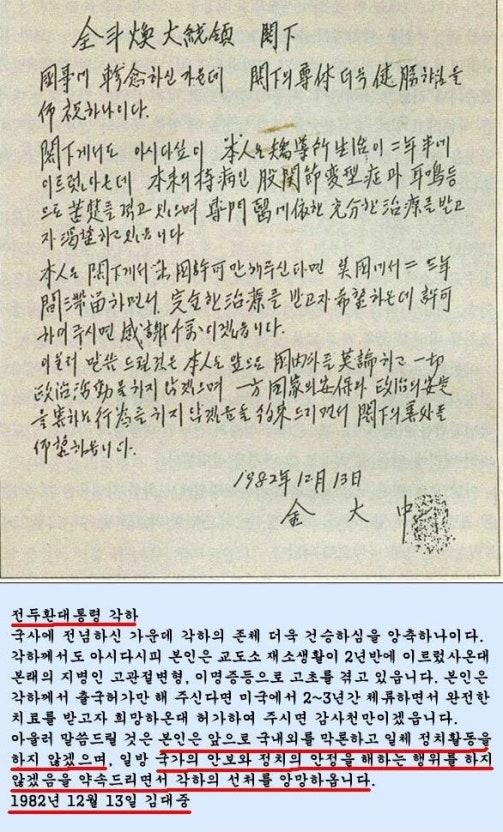 全斗煥大統領 閣下
國事에 軫念하신 가운데 閣下의 尊体 더욱 健勝하심을
仰祝하나이다.
閣下께서도 아시다싶이 本人은 矯導所生活이 二年半에
이르렀아온데 本來의 持病인 股關節変型症과 耳鳴등
으로 苦楚를 겪고 있으며 專門醫에依한 充分한 治療를 받고
자 渴望하고 있읍니다
本人은 閣下께서 出國許可만 해주신다면 美國에서 二, 三年
間 滯留하면서 完全한 治療를 받고자 希望하온데 許可
하여주시면 感謝千萬이겠읍니다.
아울러 말씀 드릴것은 本人은 앞으로 國內外를 莫論하고 一切
政治活動을 하지 않겠으며 一方 國家의 安保와 政治의 安定
을 害하는 行為를 하지 않겠음을 約束드리면서 閣下의 善処를
仰望하옵니다.
1982年 12月 13日
金 大 中
전두환대통령 각하
국사에 전념하신 가운데 각하의 존체 더욱 건승하심을 앙축하나이다.
각하께서도 아시다시피 본인은 교도소 재소생활이 2년반에 이르렀사온대
본래의 지병인 고관절변형, 이명증등으로 고초를 겪고 있읍니다. 본인은
각하께서 출국허가만 해 주신다면 미국에서 2~3년간 체류하면서 완전한
치료를 받고자 희망하온대 허가하여 주시면 감사천만이겠읍니다.
아울러 말씀드릴 것은 본인은 앞으로 국내외를 막론하고 일체 정치활동을
하지 않겠으며, 일방 국가의 안보와 정치의 안정을 해하는 행위를 하지
않겠음을 약속드리면서 각하의 선처를 앙망하옵니다.
1982년 12월 13일 김대중